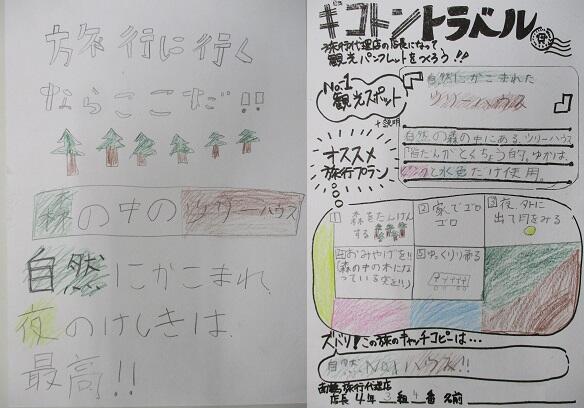 旅行に行く
ならここだ!!
森の中のツリーハウス
自然にかこまれ、
夜のけしきは
最高!!
ギコトントラベル
旅行代理店の店長になって
観光パンフレットをつくろう!!
No.1
観光スポット
自然にかこまれた
ツリーハウス
+説明
自然の森の中にある、ツリーハウス
かとくちょう的。ゆかは、
と水色だけ使用。
オススメ
旅行プラン
1 森をたんけん
する
2 家でゴロ
ゴロ
3 夜、外に
出て月をみる
4 おみやげを!!
(森の中の木にな
っている実を!!)
5 ゆっくり帰る
ズバリ!この旅のキャッチコピーは…
自然
旅行代理店
店長 4年 3組 4番 名前